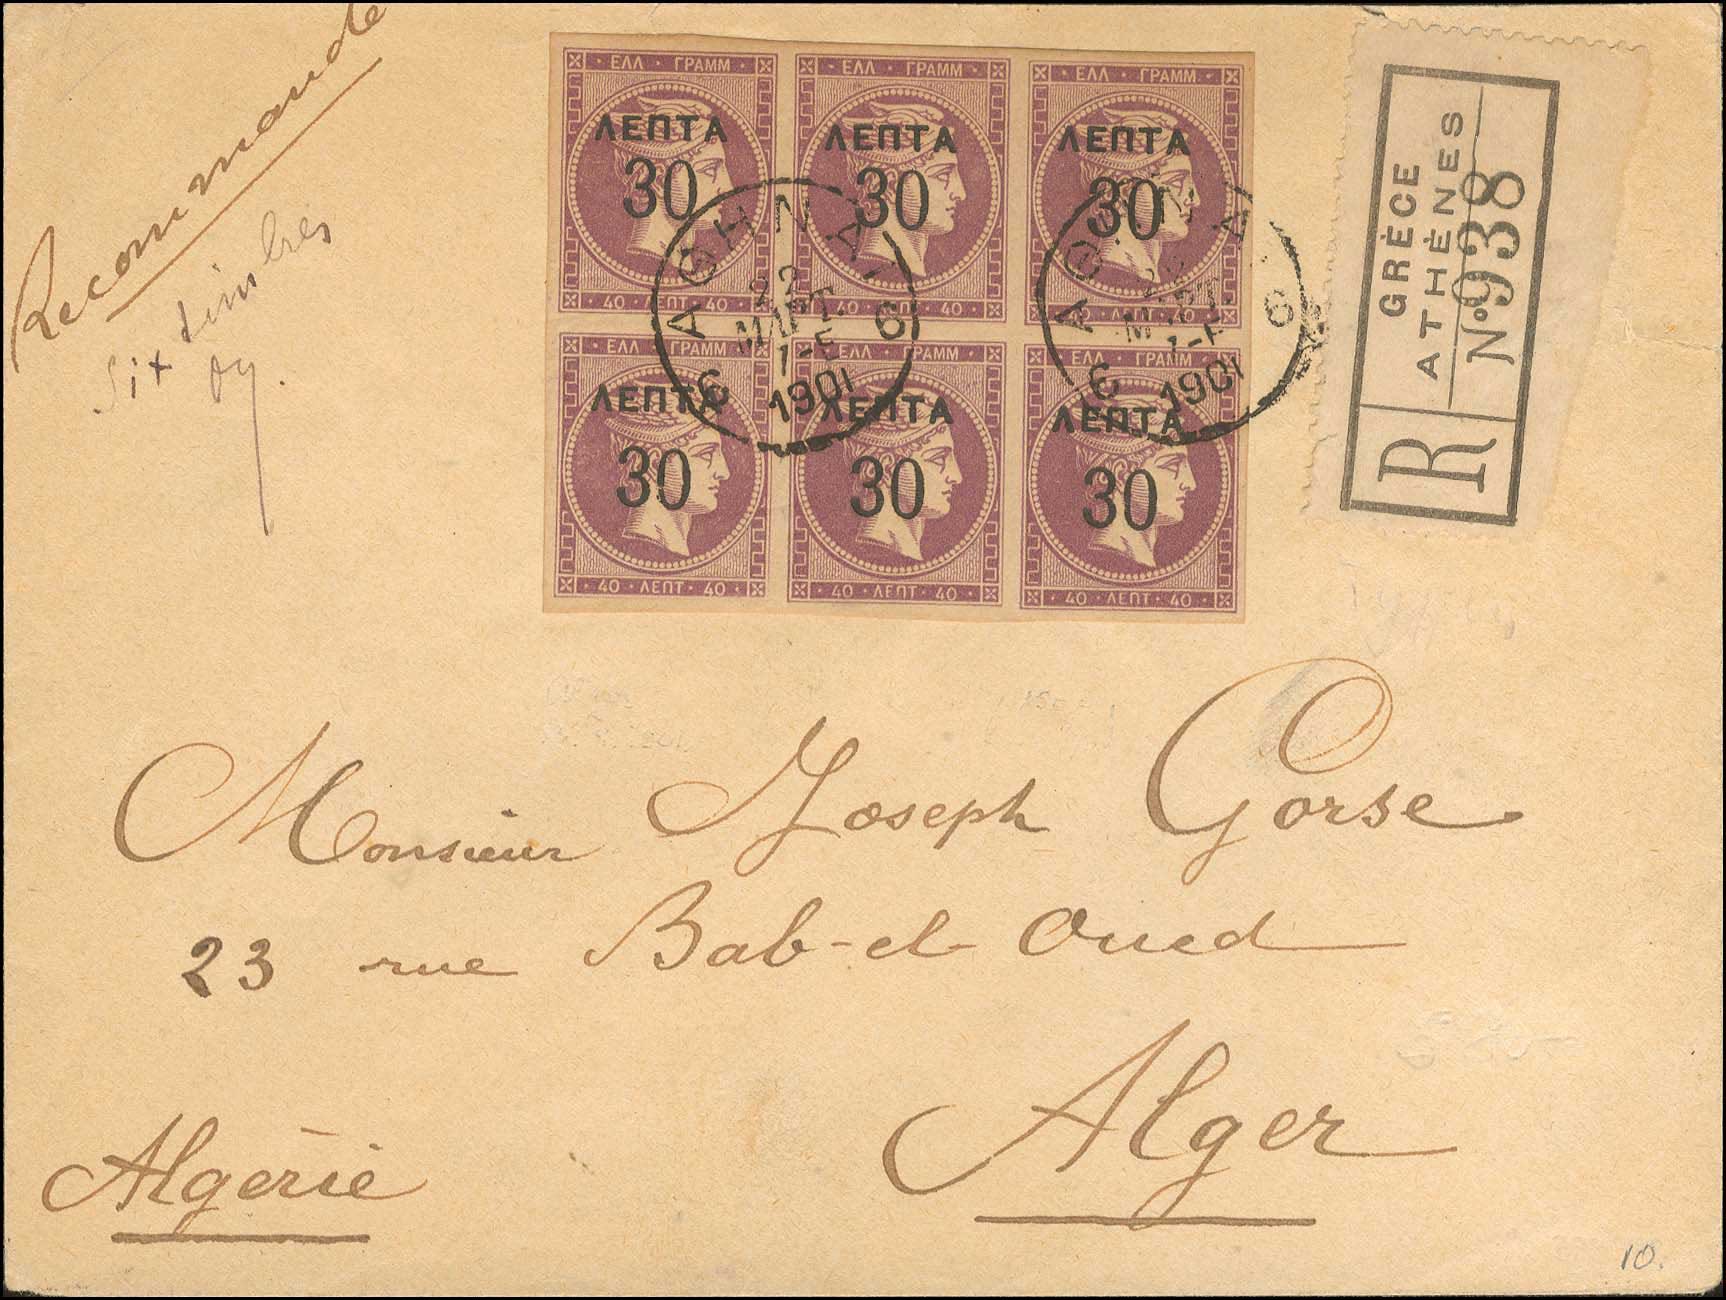 Recommandé
Six timbres
ΕΛΛ · ΓΡΑΜΜ
ΛΕΠΤΑ
30
40 · ΛΕΠΤ · 40
ΕΛΛ · ΓΡΑΜΜ
ΛΕΠΤΑ
30
40 · ΛΕΠΤ · 40
ΕΛΛ · ΓΡΑΜΜ
ΛΕΠΤΑ
30
40 · ΛΕΠΤ · 40
ΕΛΛ · ΓΡΑΜΜ
ΛΕΠΤΑ
30
40 · ΛΕΠΤ · 40
ΕΛΛ · ΓΡΑΜΜ
ΛΕΠΤΑ
30
40 · ΛΕΠΤ · 40
ΕΛΛ · ΓΡΑΜΜ
ΛΕΠΤΑ
30
40 · ΛΕΠΤ · 40
ΑΘΗΝΑΙ 6
22
ΜΑΡΤ.
1901
6
ΜΑΡΤ.
1901
R
GRÈCE
ATHÈNES
Nº 938
Monsieur Joseph Gorse
23 rue Bab-el-Oued
Alger
Algérie
10.